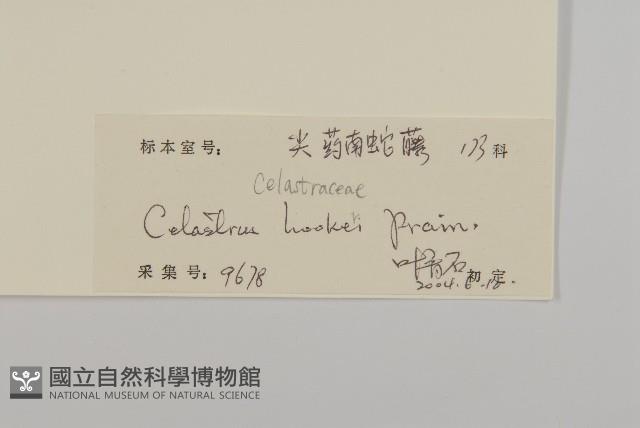 标本室号: 尖药南蛇藤 173科
Celastraceae
Celastrus hookeri Prain.
采集号: 9678 叶育石 初定
2004.6.18.
國立自然科學博物館
NATIONAL MUSEUM OF NATURAL SCIENCE